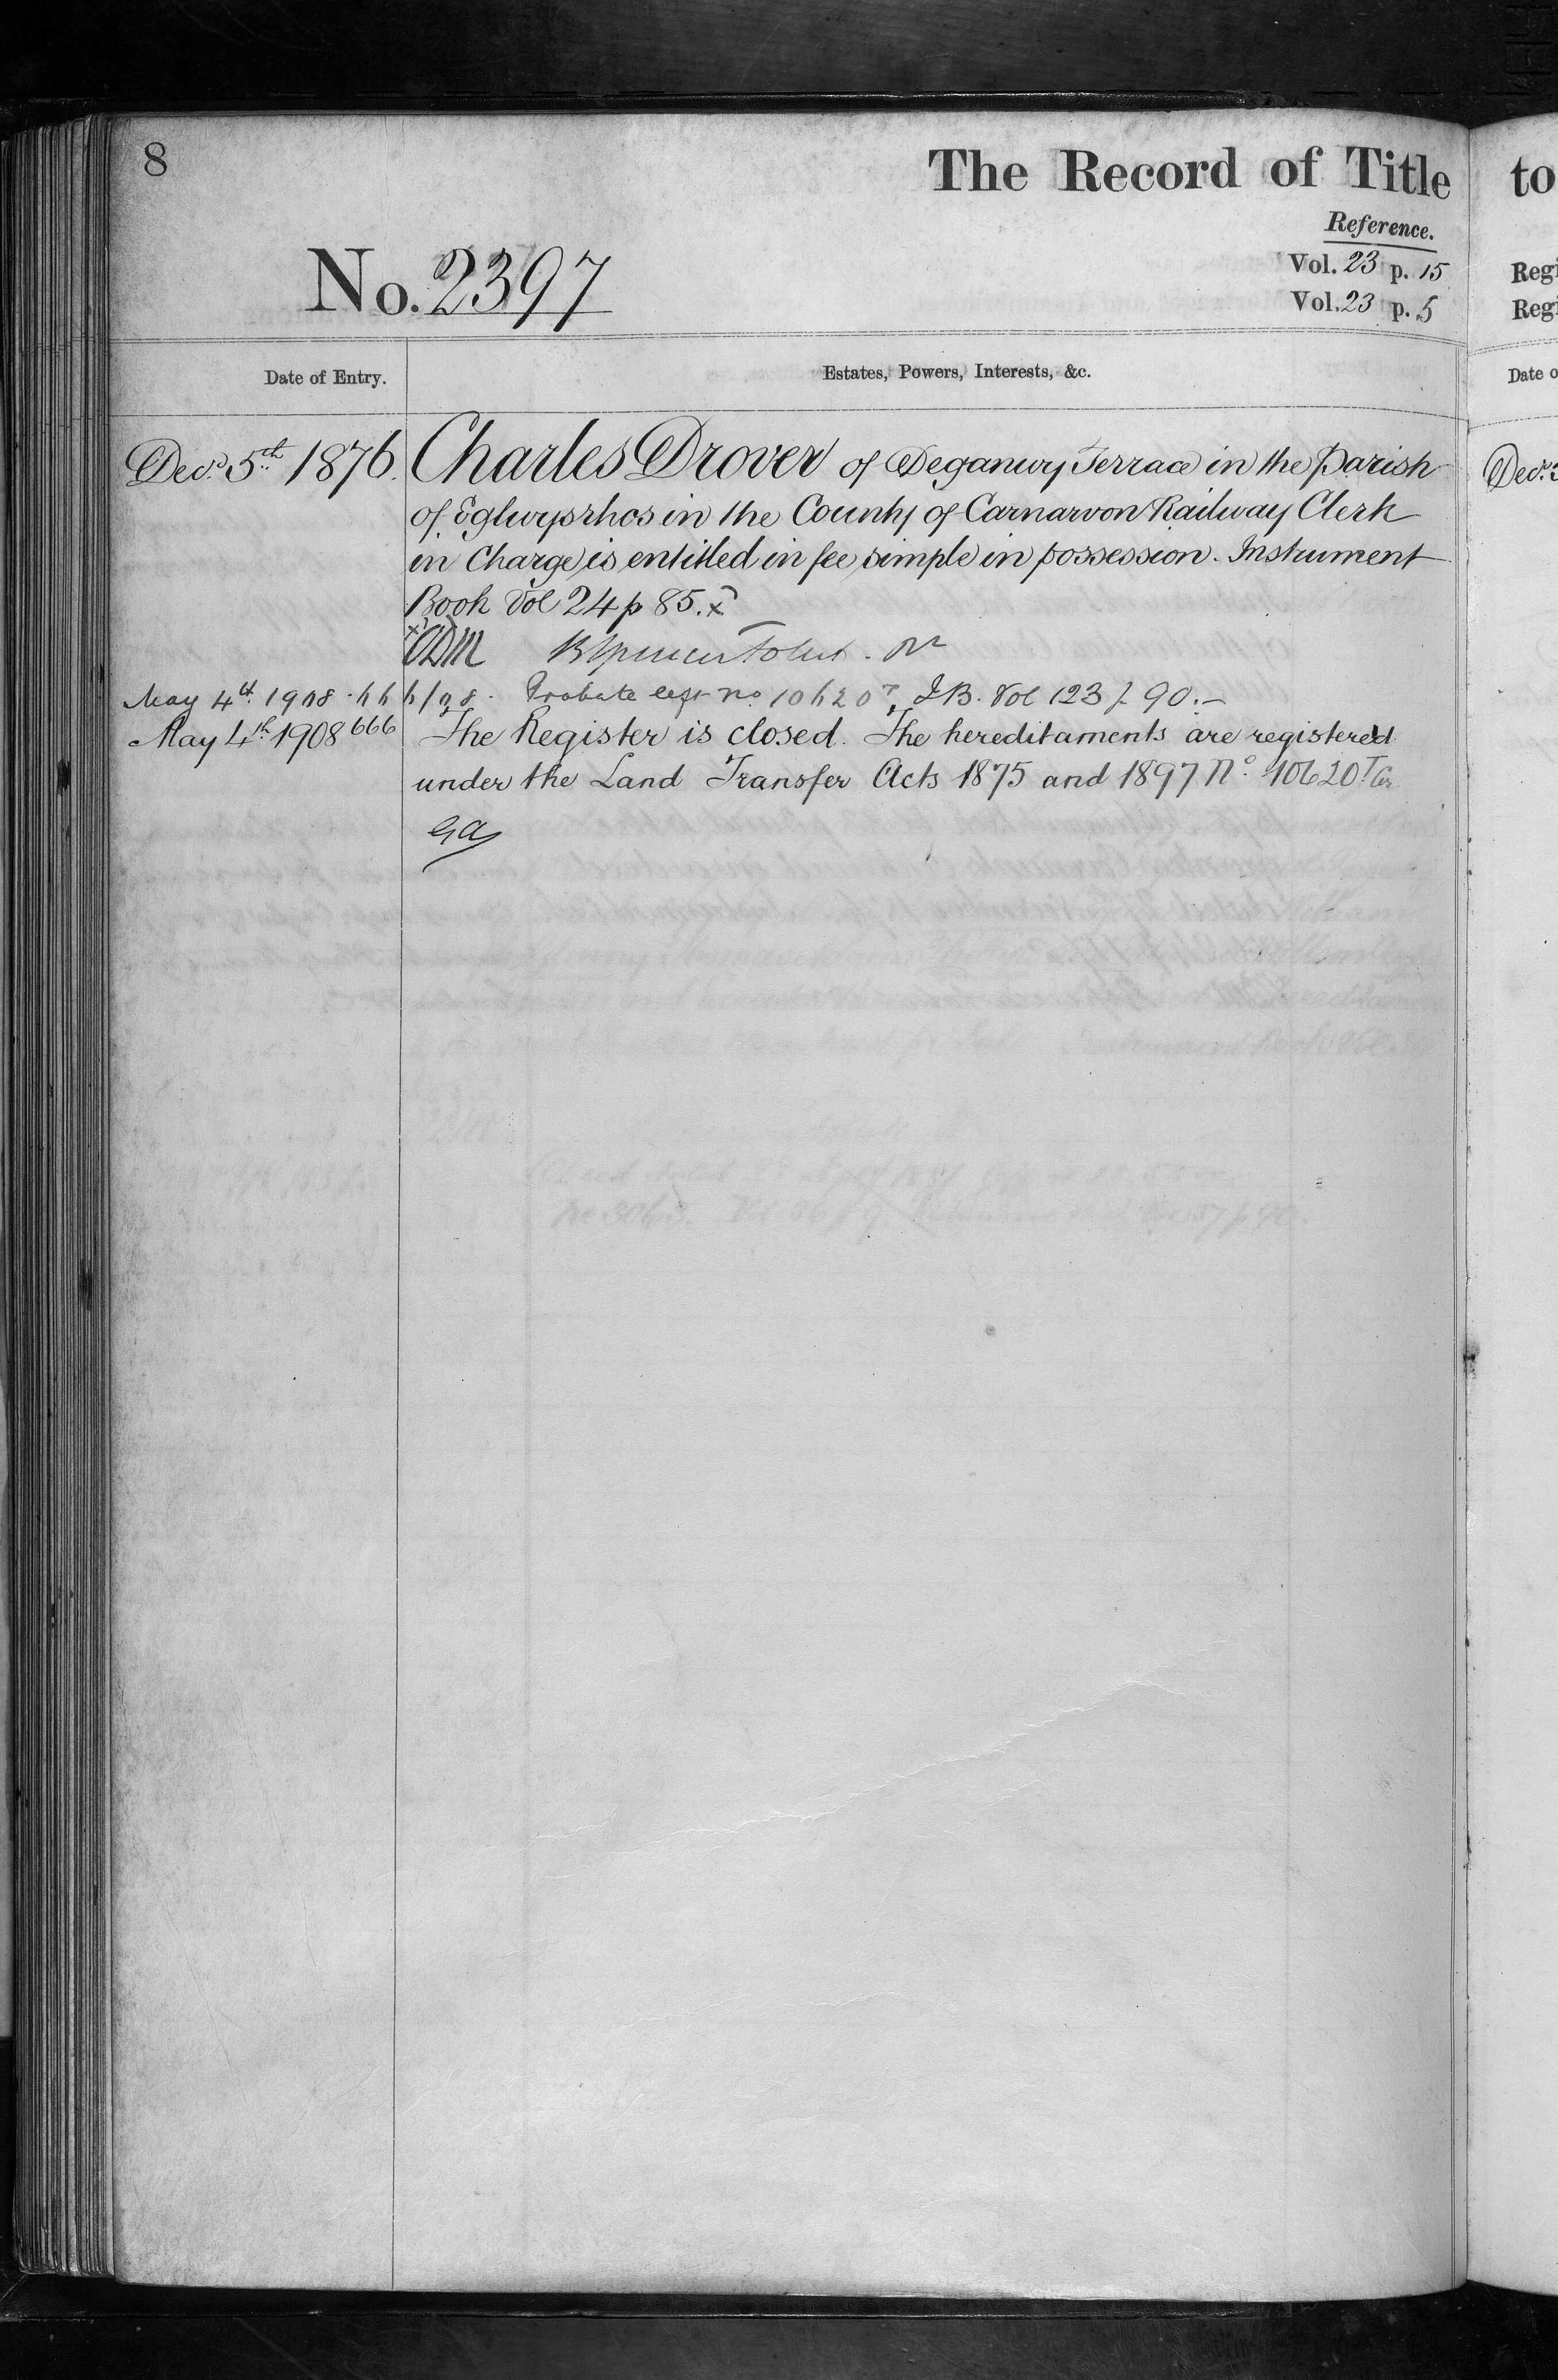 8
The Record of Title
to
Reference.
No. 2397
Vol. 23 p. 15
Regi
Vol. 23 p. 5
Regi
Date of Entry.
Estates, Powers, Interests, &c.
Date o
Decr. 5th 1876. Charles Drover of Deganwy Terrace in the Parish
of Eglwysrhos in the County of Carnarvon Railway Clerk
in Charge is entitled in fee simple in possession. Instrument
Book Vol 24 p 85. x
ADM
May 4th 1908 Probate 10620 I.B. Vol 123 p 90.
May 4th 1908 666 The Register is closed. The hereditaments are registered
under the Land Transfer Acts 1875 and 1897 No. 10620
GA